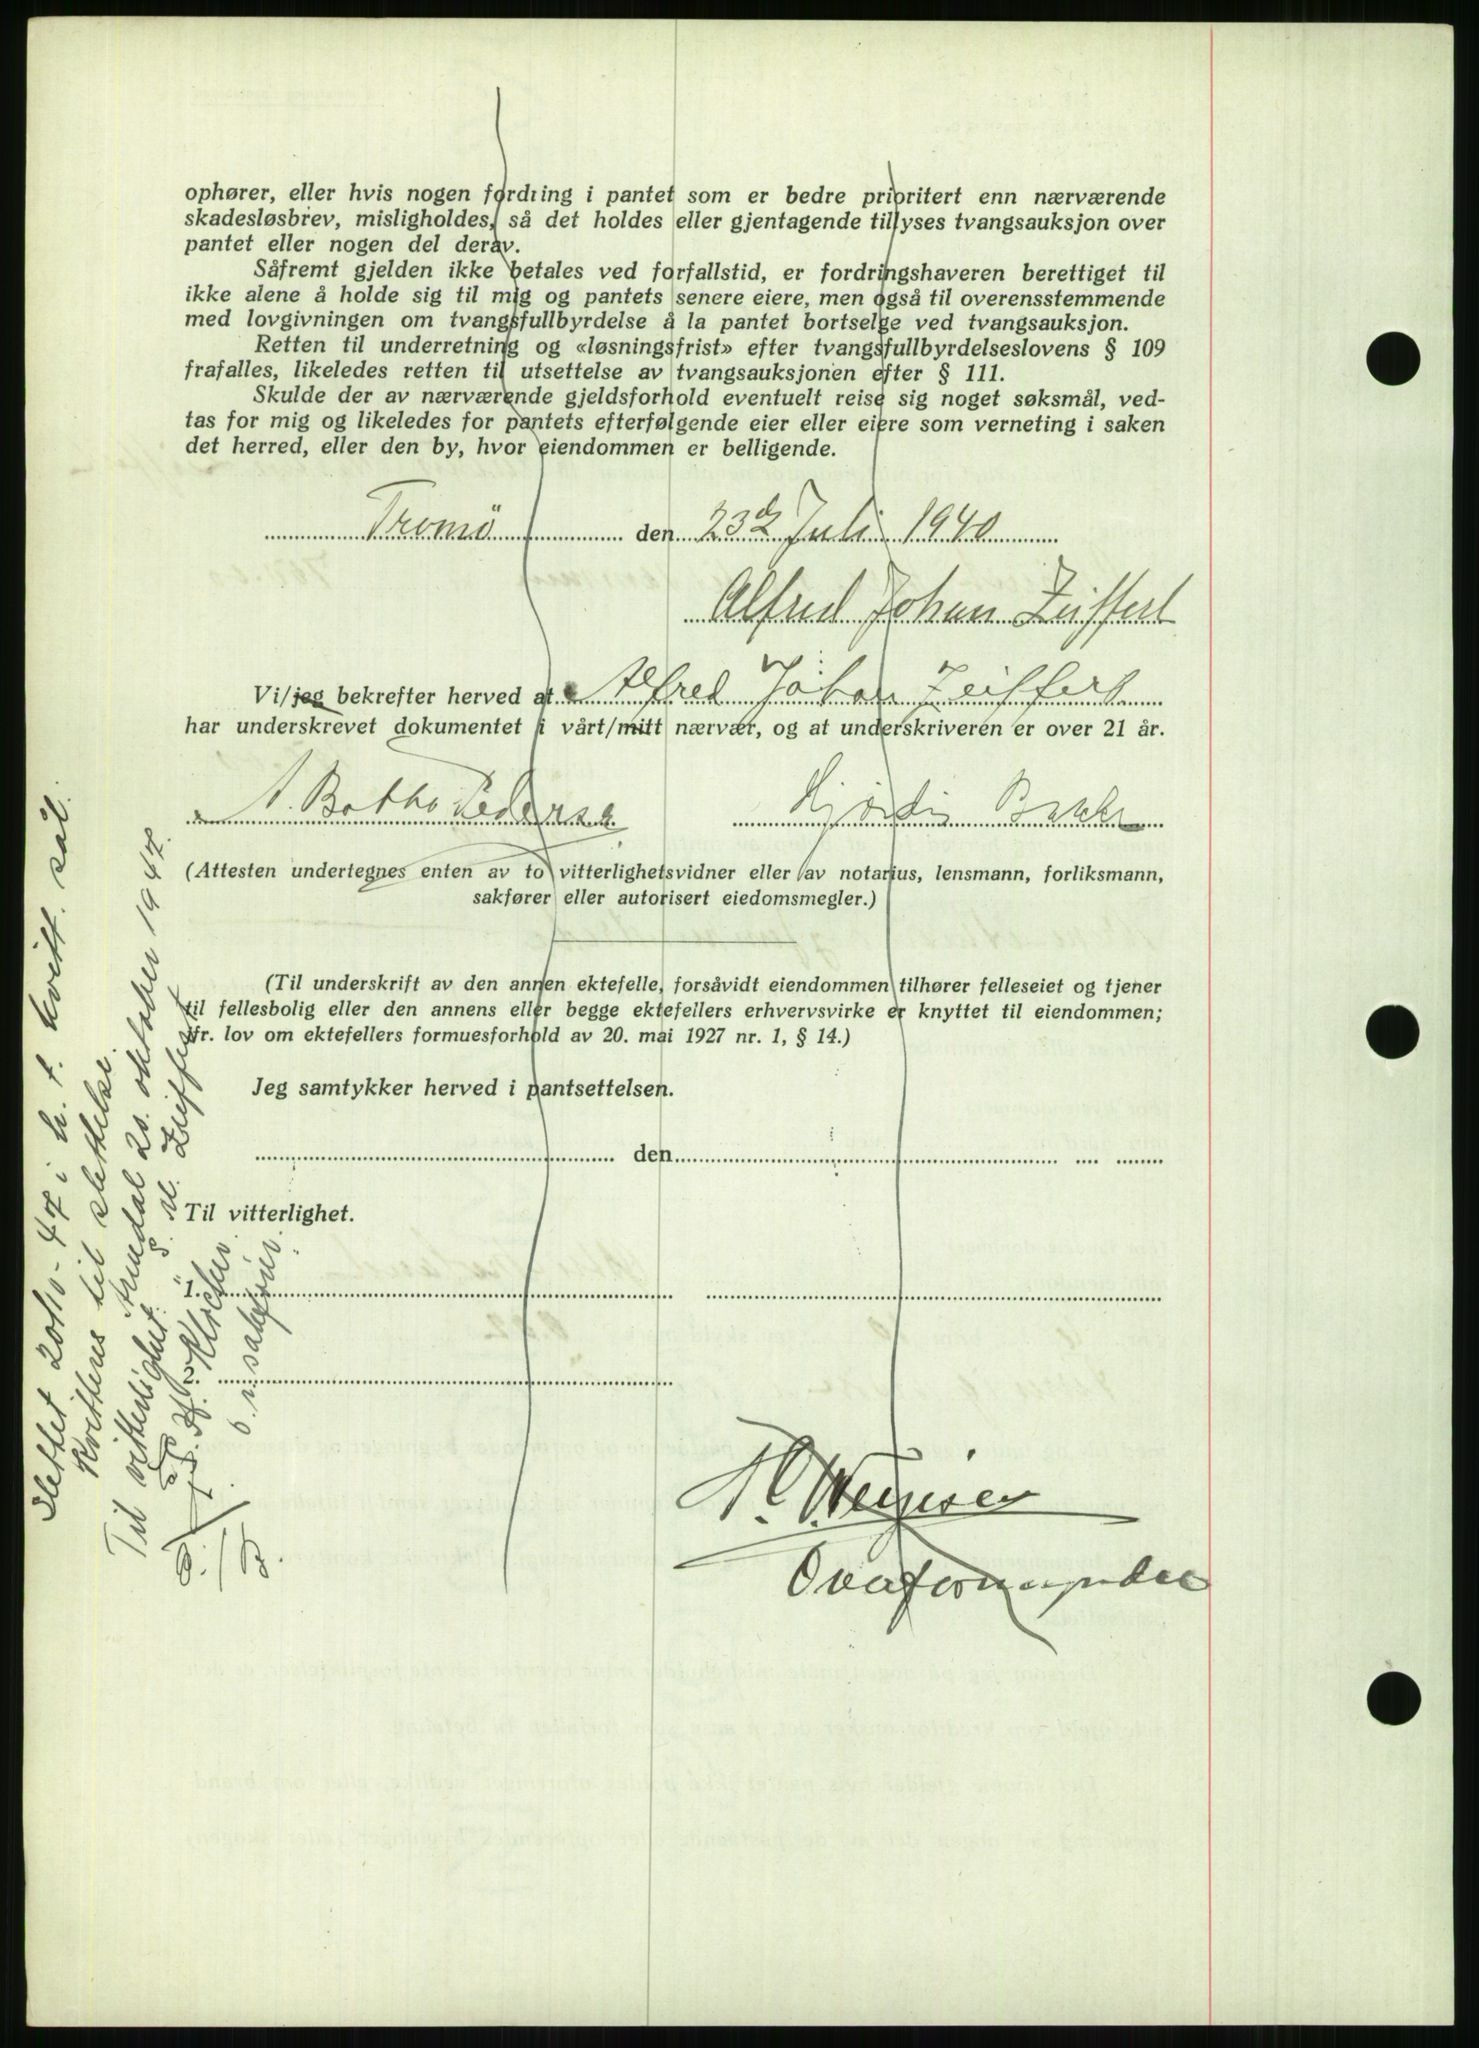 ophører, eller hvis nogen fordring i pantet som er bedre prioritert enn nærværende
skadesløsbrev, misligholdes, så det holdes eller gjentagende tillyses tvangsauksjon over
pantet eller nogen del derav.
Såfremt gjelden ikke betales ved forfallstid, er fordringshaveren berettiget til
ikke alene å holde sig til mig og pantets senere eiere, men også til overensstemmende
med lovgivningen om tvangsfullbyrdelse å la pantet bortselge ved tvangsauksjon.
Retten til underretning og «løsningsfrist» efter tvangsfullbyrdelseslovens § 109
frafalles, likeledes retten til utsettelse av tvangsauksjonen efter § 111.
Skulde der av nærværende gjeldsforhold eventuelt reise sig noget søksmål, ved-
tas for mig og likeledes for pantets efterfølgende eier eller eiere som verneting i saken
det herred, eller den by, hvor eiendommen er belligende.
Tromö den 23d Juli 1940
Alfred Johan Zeiffert
Vi/jeg bekrefter herved at Alfred Johan Zeiffert
har underskrevet dokumentet i vårt/mitt nærvær, og at underskriveren er over 21 år.
A. Bothe Pedersen Hjørdis Bakke
(Attesten undertegnes enten av to vitterlighetsvidner eller av notarius, lensmann, forliksmann,
sakfører eller autorisert eiedomsmegler.)
(Til underskrift av den annen ektefelle, forsåvidt eiendommen tilhører felleseiet og tjener
til fellesbolig eller den annens eller begge ektefellers erhvervsvirke er knyttet til eiendommen;
cfr. lov om ektefellers formuesforhold av 20. mai 1927 nr. 1, § 14.)
Jeg samtykker herved i pantsettelsen.
den
Til vitterlighet.
1.
2.
Overformynder
Slettet 20/10-47 i h. t. kvitt. sål.
Kvitteres til slettelse.
Arendal 20. oktober 1947.
Zeiffert
Til vitterlighet:
o. r. sakfører.